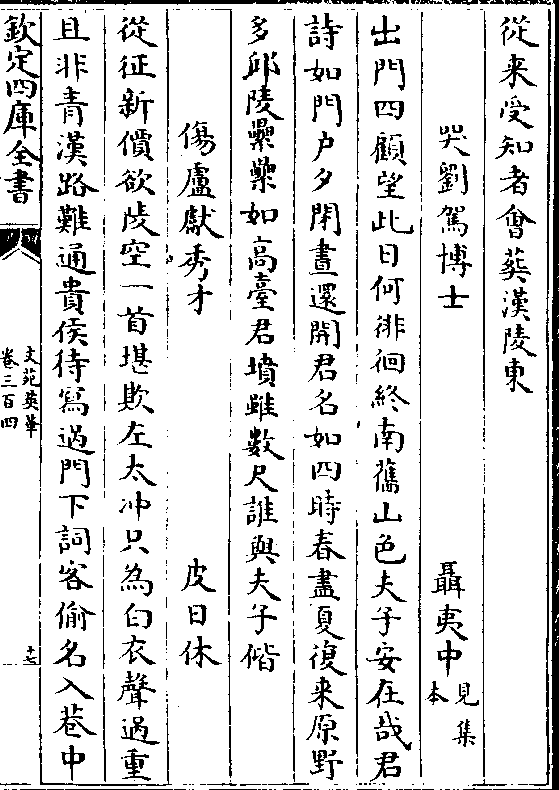 從来受知者會葬漢陵東
哭劉駕博士 聶夷中見集本
出門四顧望此日何徘徊終南舊山色夫子安在哉君
詩如門户夕閉晝還開君名如四時春盡夏復来原野
多邱陵纍纍如高臺君墳雖數尺誰與夫子偕
傷盧獻秀才 皮日休
從征新價欲陵空一首堪欺左太冲只為白衣聲過重
且非青漢路難通貴侯待寫過門下詞客偷名入巷中
欽定四庫全書 文苑英華卷三百四 十七